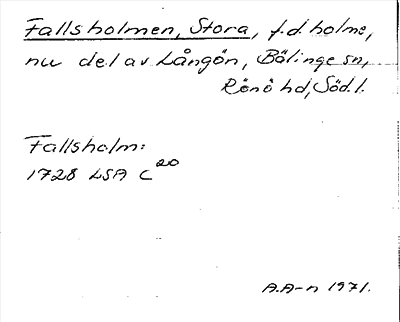 Fallsholmen, Stora, f.d. holme,
nu del av Långön, Bälinge sn,
Rönö hd, Södl.
Fallsholm:
1728 LSA C20
A.A-n 1971.